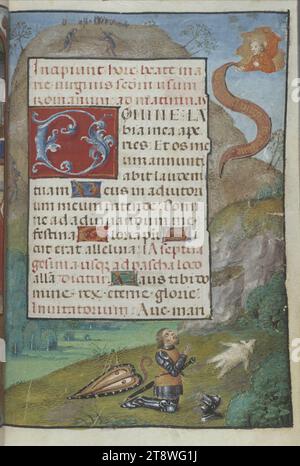 Incipiunt hore beate ma
rie virginis secundum usum
romanum ad matutinas
Domine la
bia mea ape
ries. Et os me
um annunti
abit laudem
tuam Deus in adiutori
um meum intende Domi
ne ad adiuvandum me
festina Gloria patri
cut erat alleluia A septua
gesima usque ad pascha loco
alla dicitur Laus tibi do
mine rex eterne glorie
Invitatorium Ave mari
alamy
Image ID: 2WWG1J
www.alamy.com